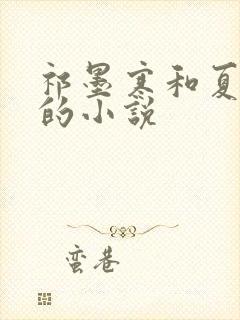 祁墨寒和夏
的小說
蛮巷